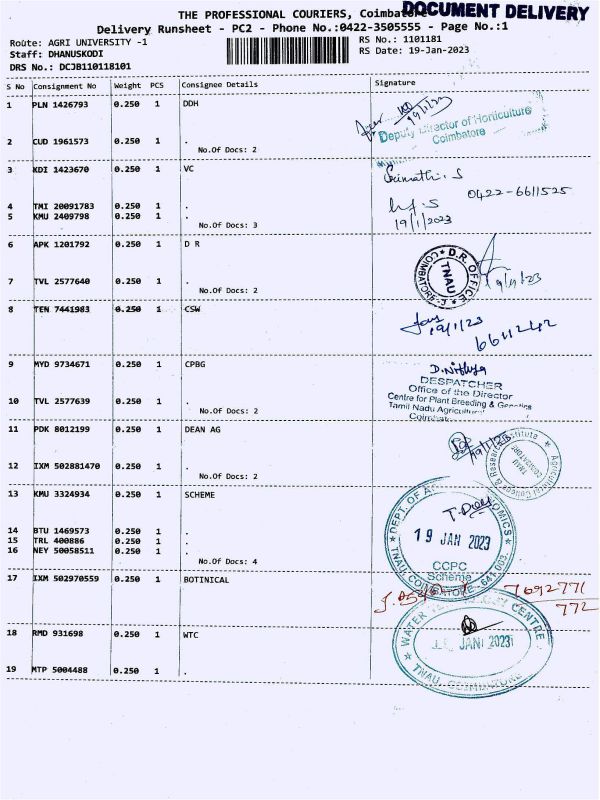 THE PROFESSIONAL COURIERS, Coimbatore DOCUMENT DELIVERY
Delivery Runsheet - PC2 - Phone No.:0422-3505555 - Page No.:1
Route: AGRI UNIVERSITY -1
RS No.: 1101181
Staff: DHANUSKODI
RS Date: 19-Jan-2023
DRS No.: DCJB110118101
S No Consignment No Weight PCS Consignee Details Signature
1 PLN 1426793 0.250 1 DDH
19/1/23
Deputy Director of Horticulture
Coimbatore
2 CUD 1961573 0.250 1 .
No.Of Docs: 2
3 KDI 1423670 0.250 1 VC
0422-6611525
4 TMI 20091783 0.250 1 .
5 KMU 2409798 0.250 1 .
19/1/2023
No.Of Docs: 3
6 APK 1201792 0.250 1 D R
D.R. OFFICE
TNAU
COIMBATORE-3
7 TVL 2577640 0.250 1 .
No.Of Docs: 2
8 TEN 7441983 0.250 1 CSW
19/1/23
6611242
9 MYD 9734671 0.250 1 CPBG
D. Nithya
DESPATCHER
Office of the Director
Centre for Plant Breeding & Genetics
Tamil Nadu Agricultural
10 TVL 2577639 0.250 1 .
No.Of Docs: 2
11 PDK 8012199 0.250 1 DEAN AG
19/1/23
Agricultural College & Research Institute
TNAU
COIMBATORE
12 IXM 502881470 0.250 1 .
No.Of Docs: 2
13 KMU 3324934 0.250 1 SCHEME
19 JAN 2023
CCPC
Scheme
14 BTU 1469573 0.250 1 .
15 TRL 400886 0.250 1 .
16 NEY 50058511 0.250 1 .
No.Of Docs: 4
17 IXM 502970559 0.250 1 BOTINICAL
7692771
772
18 RMD 931698 0.250 1 WTC
WATER CENTRE
JAN 2023
TNAU, COIMBATORE
19 MTP 5004488 0.250 1 .